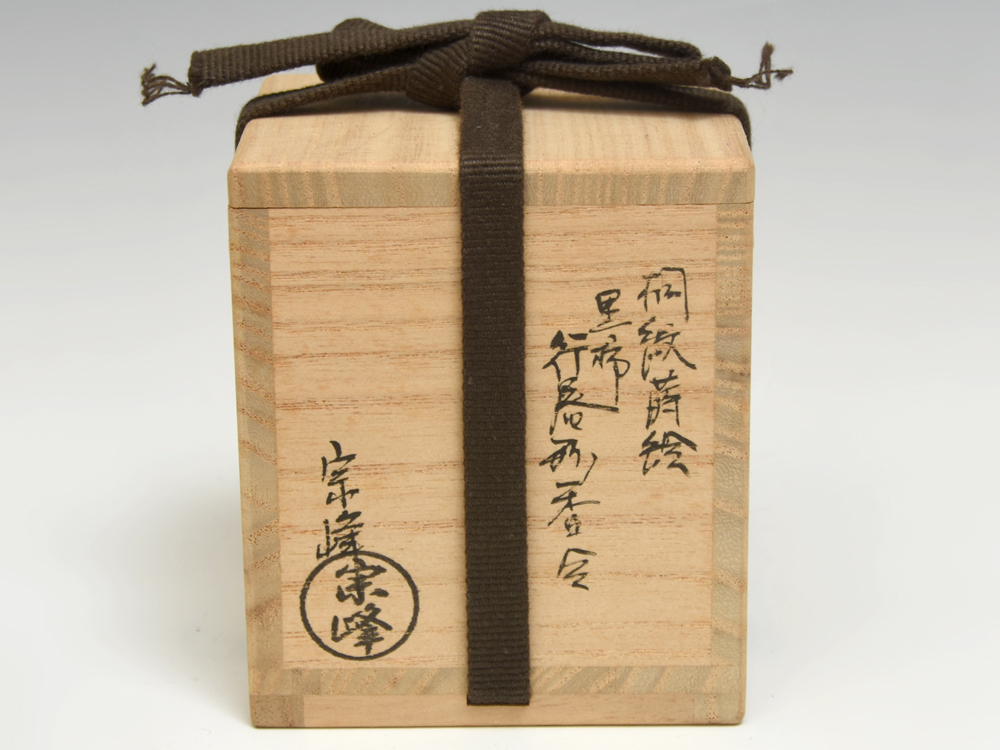 桐紋蒔絵
黒柿
行器形香合
宗峰
宗峰